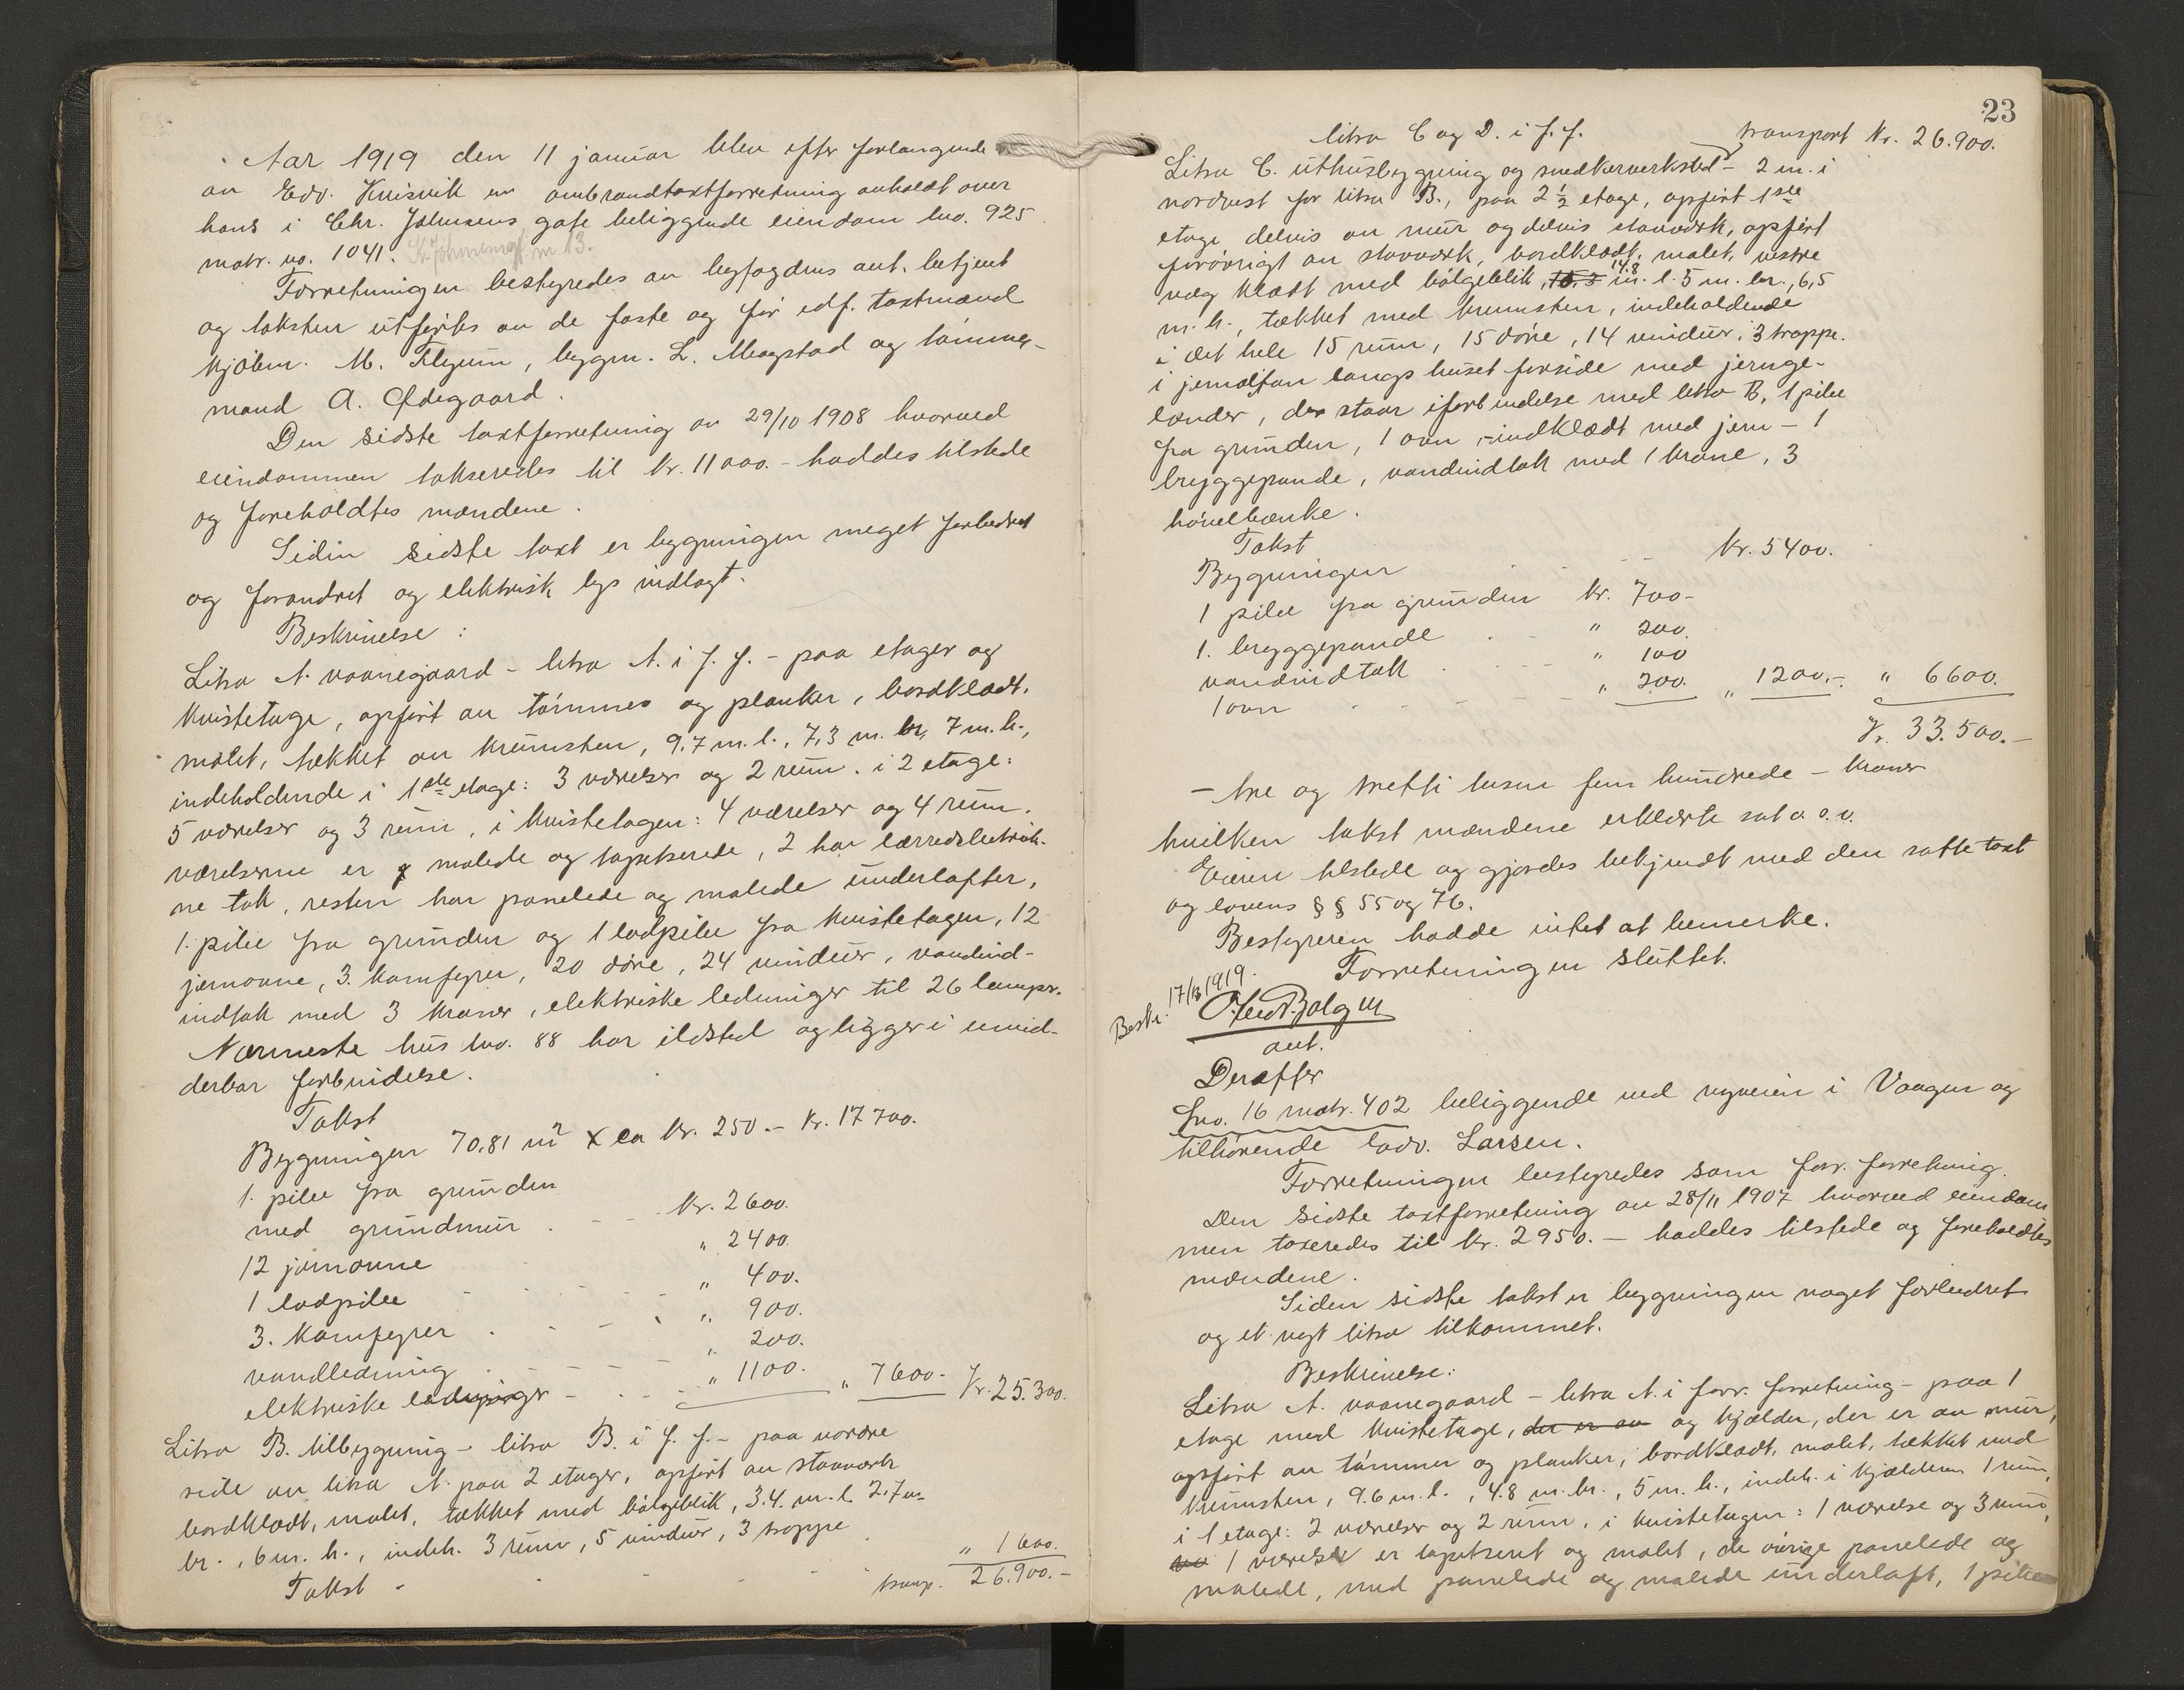 Aar 1919 den 11 januar blev efter forlangende
av Edv. Knisvik en ombrandtaxtforretning avholdt over
hans i Chr. Johnsens gate beliggende eiendom lno. 925
matr. no. 1041. K. Johnsensgt nr 13.
Forretningen bestyredes av byfogdens aut. betjent
og taksten utførtes av de faste og før edf. taxtmænd
kjøbm. M. Flyum, bygm. L. Magstad og tømmer-
mand A. Ødegaard.
Den sidste taxtforretning av 29/10 1908 hvorved
eiendommen takseredes til kr. 11000.- haddes tilstede
og foreholdtes mændene.
Siden sidste taxt er bygningen meget forbedret
og forandret og elektrisk lys indlagt.
Beskrivelse:
Litra A. vaanegaard - litra A. i f. f. - paa etager og
kvistetage, opført av tømmer og planker, bordklædt,
malet, tækket av krumsten, 9,7 m. l., 7,3 m. br, 7 m. h.,
indeholdende i 1ste etage: 3 værelser og 2 rum. i 2 etage:
5 værelser og 3 rum, i kvistetagen: 4 værelser og 4 rum.
værelserne er malede og tapetserede, 2 har lærredsbetruk-
ne tak, resten har panelede og malede underlofter,
1. pibe fra grunden og 1 lodpibe fra kvistetagen, 12
jernovne, 3. komfyrer, 20 døre, 24 vinduer, vandind-
indtak med 3 kraner, elektriske ledninger til 26 lamper.
Nærmeste hus lno. 88 har ildsted og ligger i umid-
derbar forbindelse.
Takst
Bygningen 70.81 m² x ca kr. 250.- Kr. 17700.
1. pibe fra grunden
med grundmur . - - Kr. 2600.
12 jernovne " 2400.
1 lodpibe - - - - " 400.
3. komfyrer . - - . " 900.
vandledning . - - - - " 200.
elektriske ledninger - . - - " 1100. " 7600.- Kr. 25.300.
Litra B. tilbygning - litra B. i f. f. - paa nordre
side av litra A. paa 2 etager, opført av stavværk
bordklædt, malet, tækket med bølgeblik, 3.4. m. l. 2.7 m.
br., 6 m. h., indeh. 3 rum, 5 vinduer, 3 trappe
Takst - - - - " 1600.
transp. 26.900.-
23
litra C og D. i f. f. transport Kr. 26.900.
Litra C. uthusbygning og snedkerverksted - 2 m. i
nordvest for litra B., paa 2 ½ etage, opført 1ste
etage delvis av mur og delvis stavværk, opført
forøvrigt av stavværk, bordklædt, malet, vestre
væg klædt med bølgeblik, 14.8 m. l. 5 m. br., 6,5
m. h., tækket med krumsten, indeholdende
i det hele 15 rum, 15 døre, 14 vinduer, 3 trappe.
i jernaltan langs huset forside med jernge-
lænder, der staar i forbindelse med litra B, 1 pibe
fra grunden, 1 ovn - indklædt med jern - 1
bryggepande, vandindtak med 1 krane, 3
høvelbænke.
Takst
Bygningen - - - Kr. 5400.
1 pibe fra grunden Kr. 700-
1. bryggepande . - " 200.
vandindtak . - - - " 100
1 ovn - - - - - " 200. " 1200.- " 6600.
Kr. 33.500.-
- tre og tretti tusen fem hundrede - kroner
hvilken takst mændene erklærte sat o. s. v.
Eieren tilstede og gjordes bekjendt med den satte taxt
og lovens § § 55 og 76.
Bestyreren hadde intet at bemerke.
Forretningen sluttet.
Beskr. 17/3 1919.
aut.
Derefter
Lno. 16 matr. 402 beliggende ved nyveien i Vaagen og
tilhørende Edv. Larsen.
Forretningen bestyredes som forr. forretning.
Den sidste taxtforretning av 28/11 1907 hvorved eiendom
men taxeredes til kr. 2950.- haddes tilstede og foreholdtes
mændene.
Siden sidste takst er bygningen noget forbedret
og et nyt litra tilkommet.
Beskrivelse:
Litra A. vaanegaard - litra A. i forr. forretning - paa 1
etage med kvistetage, der er av og kjælder, der er av mur,
opført av tømmer og planker, bordklædt, malet, tækket med
krumsten, 9.6 m. l., 4.8 m. br., 5 m. h., indeh. i kjælderen 1 rum,
i 1 etage: 2 værelser og 2 rum, i kvistetagen: 1 værelse og 3 rum,
1 værelse er tapetseret og malet, de øvrige panelede og
malede, med panelede og malede underloft, 1 pibe